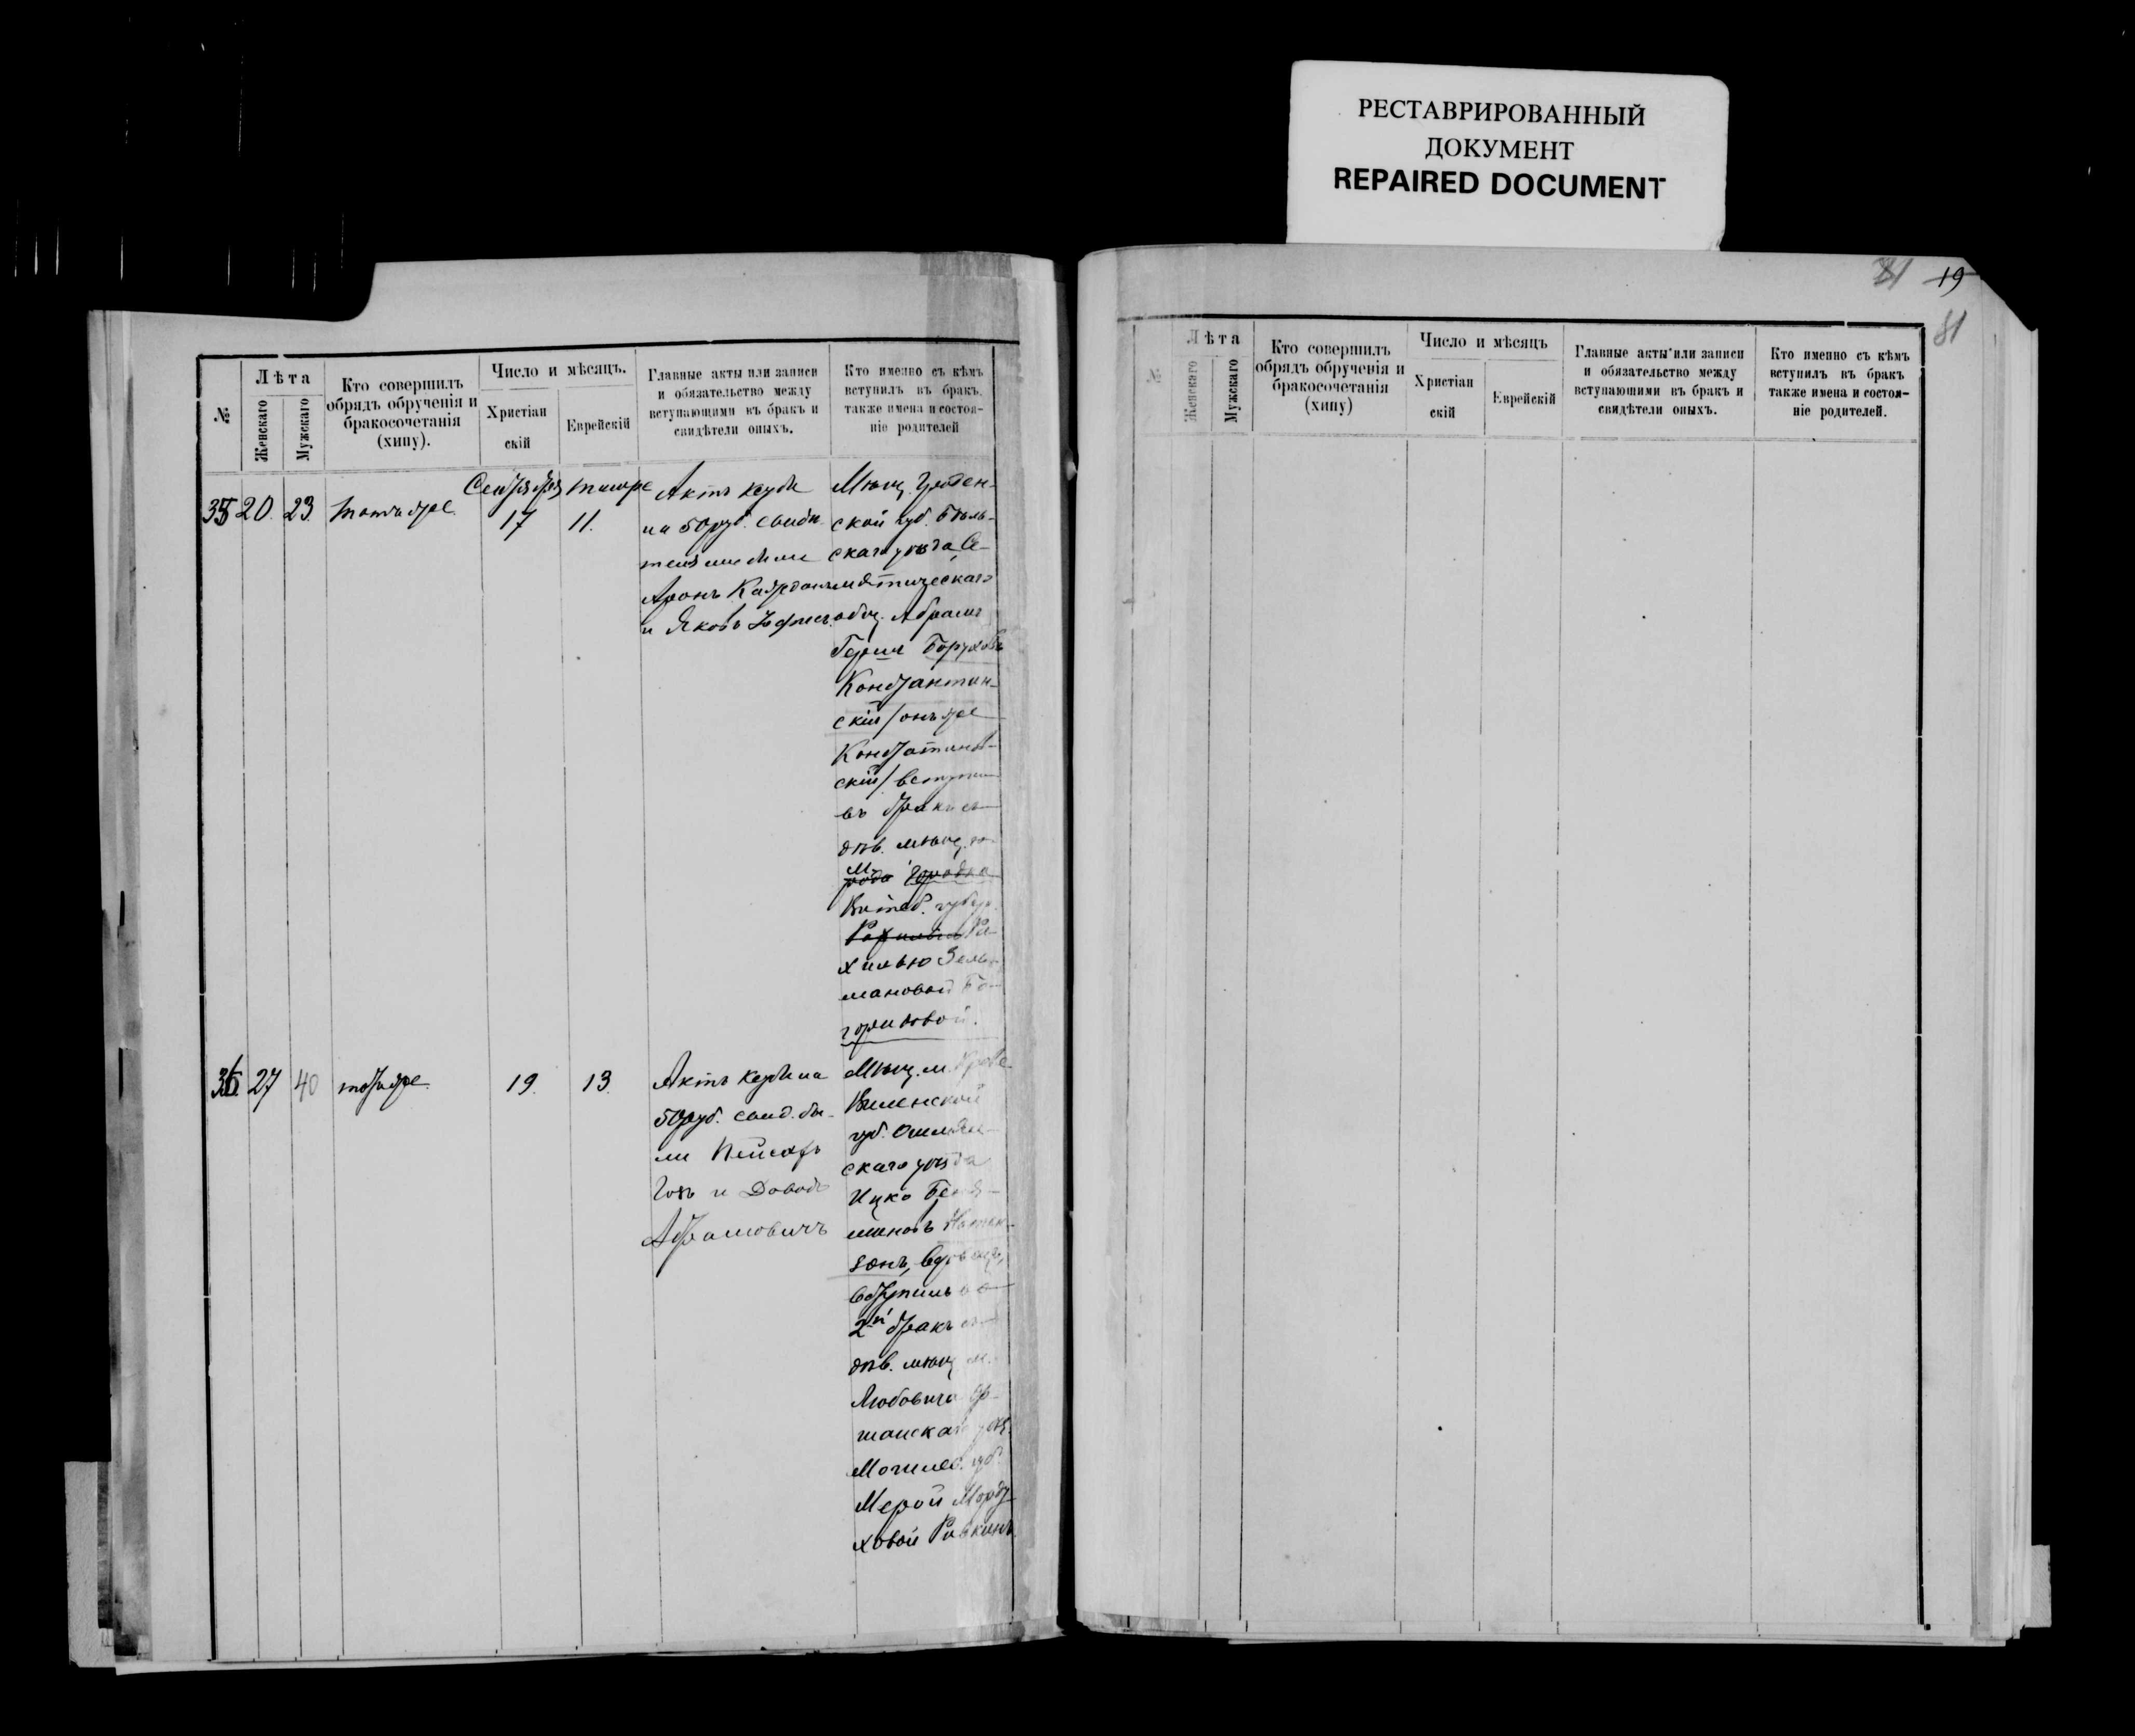 РЕСТАВРИРОВАННЫЙ
ДОКУМЕНТ
REPAIRED DOCUMENT
№
Лѣта
Женскаго
Мужскаго
Кто совершилъ
обрядъ обрученія и
бракосочетанія
(хипу).
Число и мѣсяцъ.
Христіан
скій
Еврейскій
Главные акты или записи
и обязательство между
вступающими въ бракъ и
свидѣтели оныхъ.
Кто именно съ кѣмъ
вступилъ въ бракъ,
также имена и состоя-
ніе родителей
35
20.
23.
тотъ же
Сентября
17
Тишре
11.
Актъ кетуби
на 50 руб. свидѣ-
телями были
Аронъ
и Яковъ
Мѣщ. Гроднен-
ской губ. Бѣль-
скаго уѣзда, Се-
мятическаго
общ. Абрамъ
Гершъ Боруховъ
Константин-
скій/онъ же
Константинов-
скій/вступилъ
въ бракъ съ
дѣв. мѣщ.
м.
Городка
Витеб. губер.
Ра-
хилью Зель-
мановой Бо-
гориковой.
36
27
40
тотъ же
19.
13.
Актъ кетуби на
50 руб. свид. бы-
ли Пейсахъ
и Довидъ
Абрамовичъ
Мѣщ. м. Крево
Виленской
губ. Ошмян-
скаго уѣзда
Ицко Беня-
миновъ Натан-
зонъ, вдовецъ,
вступилъ во
2й бракъ съ
дѣв. мѣщ. м.
Любовича Ор-
шанскаго уѣз.
Могилев. губ.
Мерой Морду-
ховой Равкинъ
19
81
№
Лѣта
Женскаго
Мужскаго
Кто совершилъ
обрядъ обрученія и
бракосочетанія
(хипу)
Число и мѣсяцъ
Христіан
скій
Еврейскій
Главные акты или записи
и обязательство между
вступающими въ бракъ и
свидѣтели оныхъ.
Кто именно съ кѣмъ
вступилъ въ бракъ
также имена и состоя-
ніе родителей.